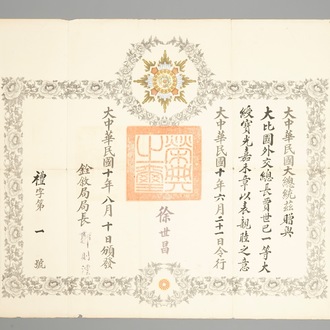 大中華民國大總統茲贈與
大比國外交總長賈世巴一等大
綬寶光嘉禾章以表親睦之意
大中華民國十年六月二十一日令行
徐世昌
大中華民國十年八月十日頒發
銓敘局局長
禮字第一號